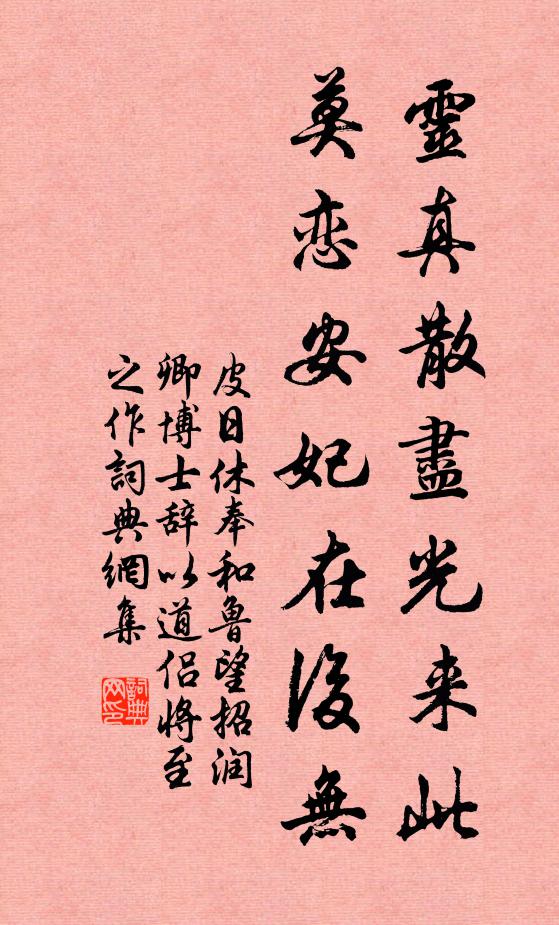 靈真散盡光来此
莫恋安妃在後無
皮日休奉和魯望招润
卿博士辞以道侣将至
之作詞典網集
詞典
网印